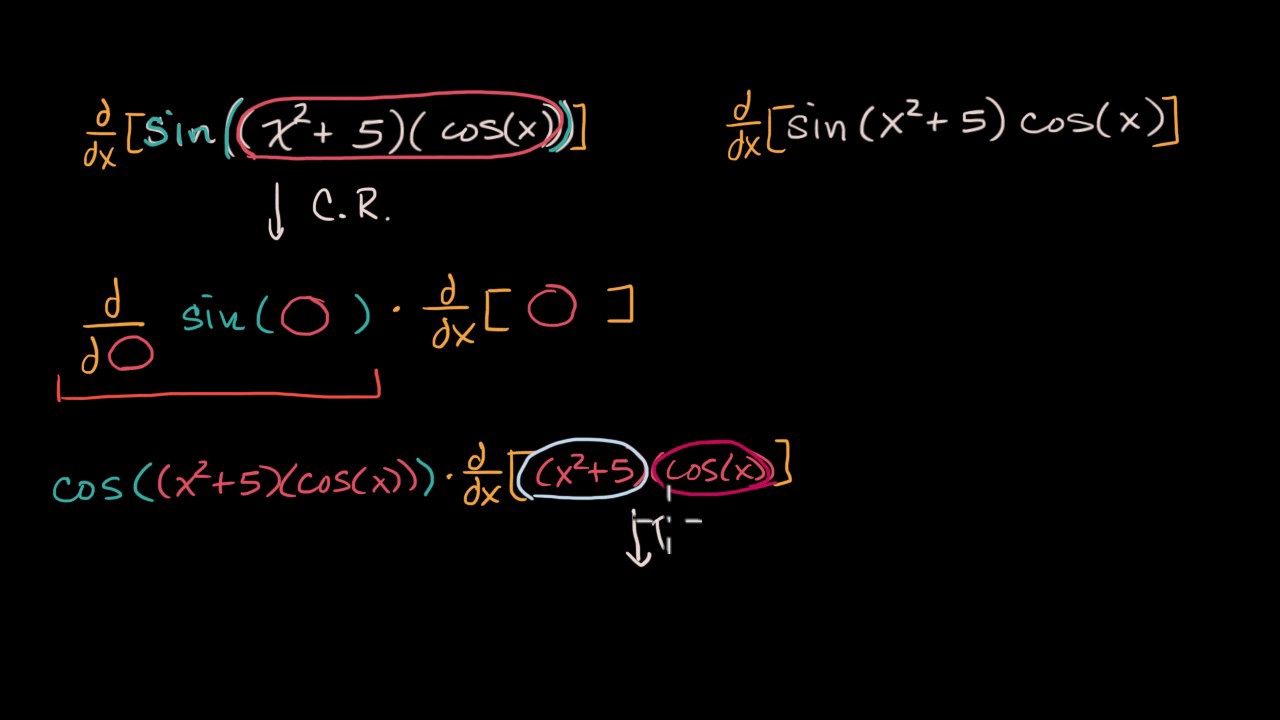 d/dx [sin((x²+ 5)( cos(x)))]
d/dx [sin(x²+ 5) cos(x)]
↓ C.R.
d/d○ sin(○) · d/dx [ ○ ]
cos((x²+5)(cos(x))) · d/dx [(x²+5) cos(x)]
↓